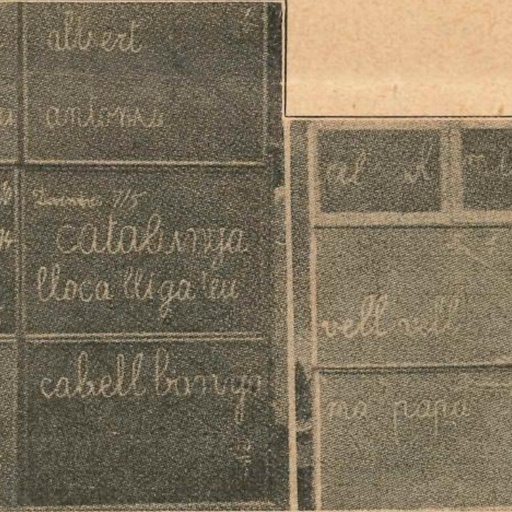 albert
antonio
7/5
catalunya
lloca lliga leu
cabell banya
al
vell vell
ma papa